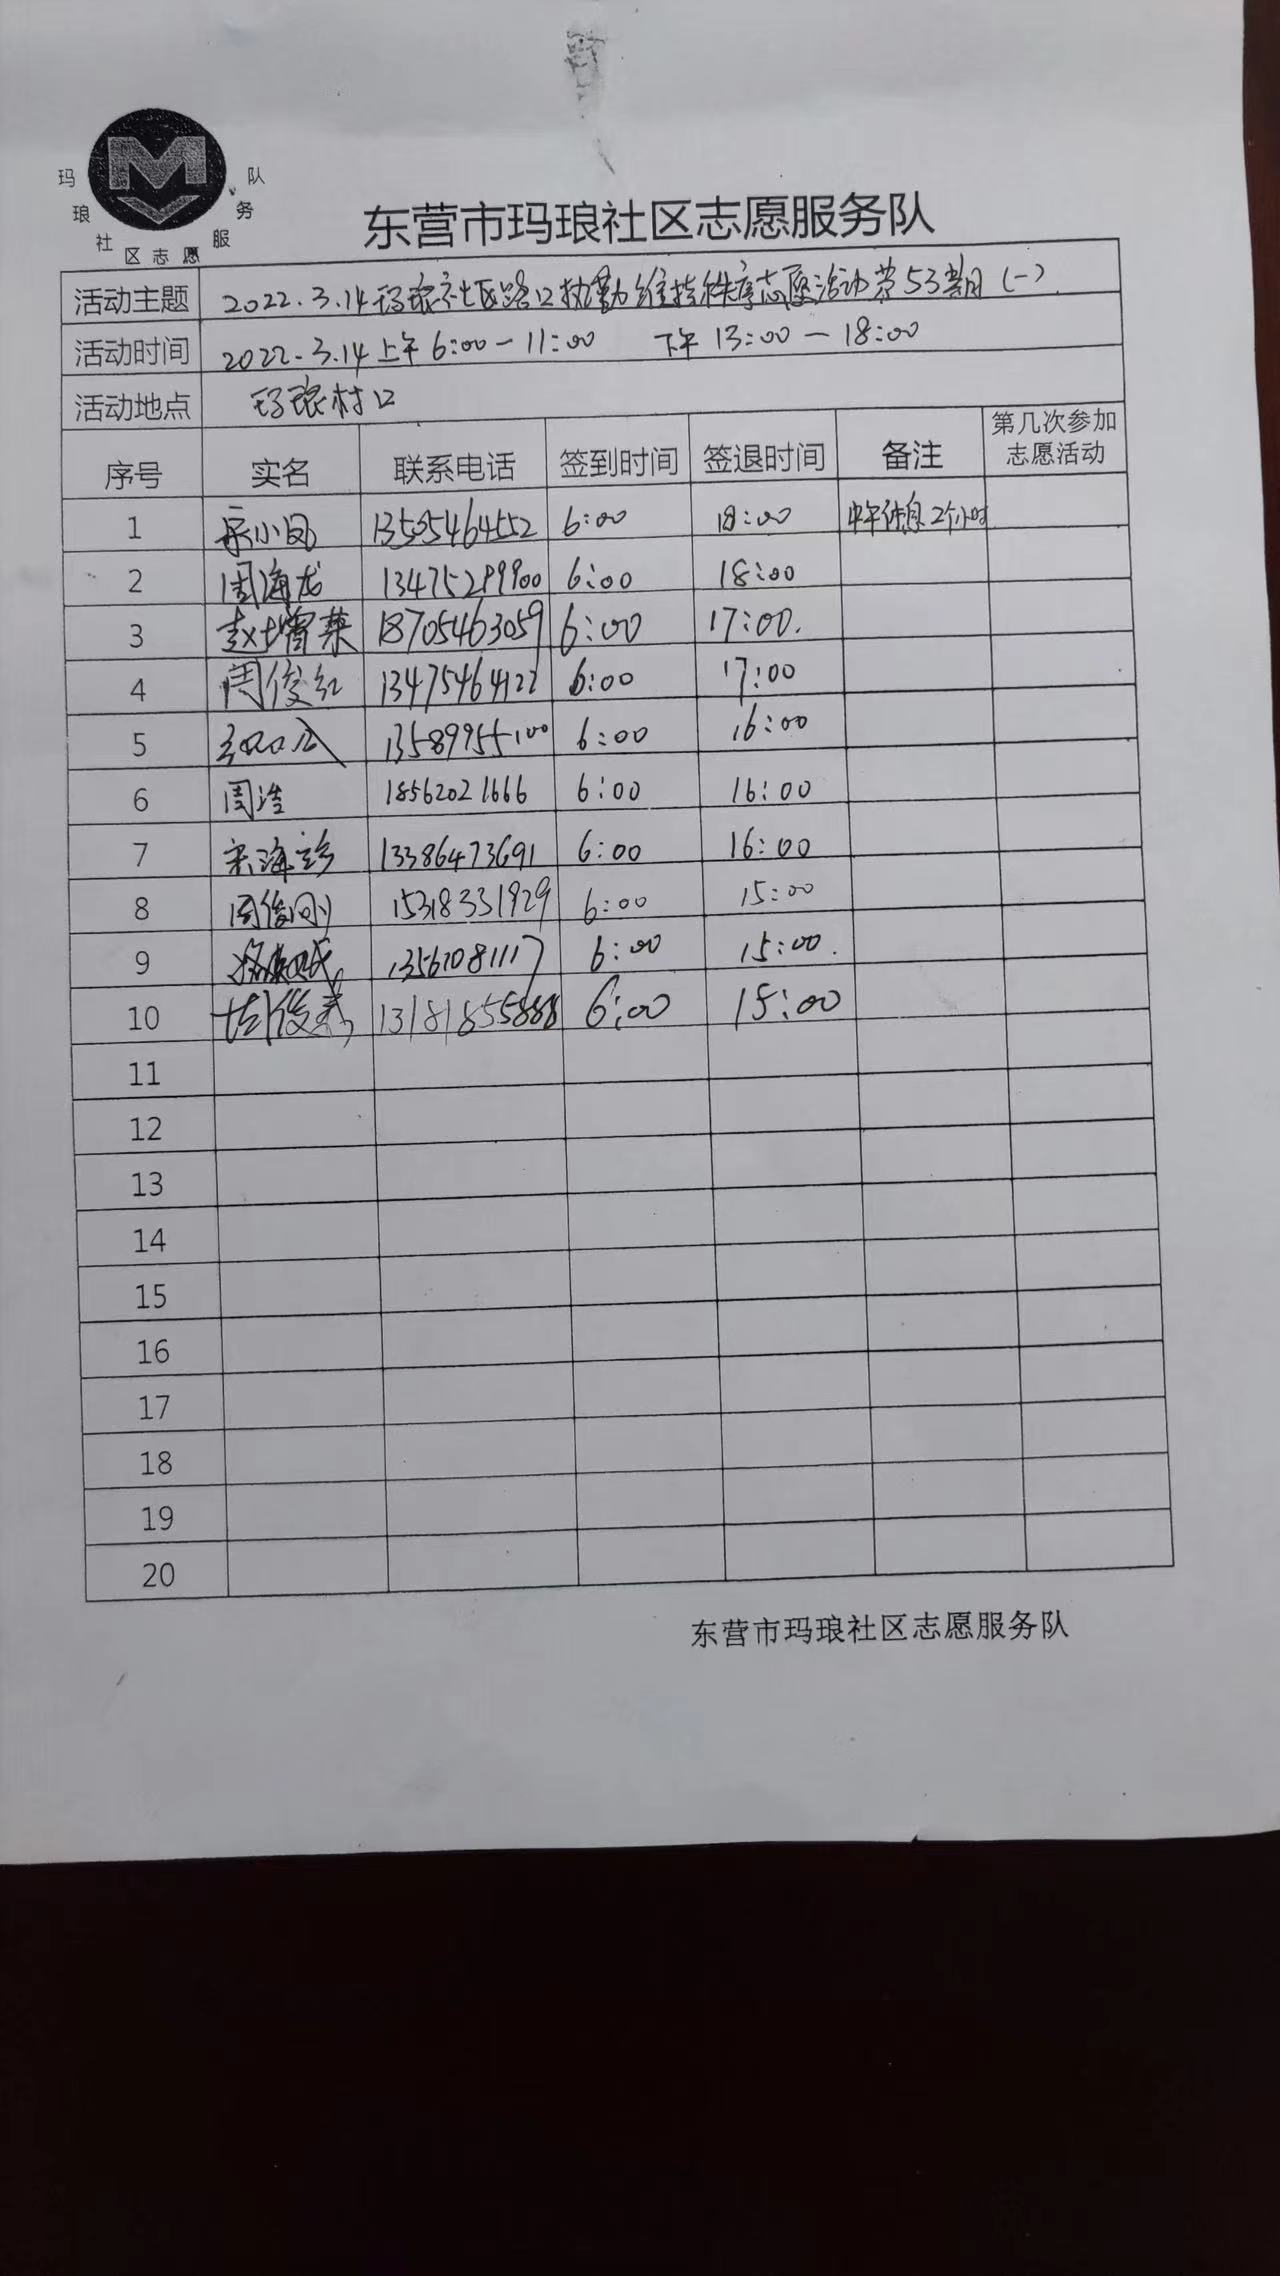 玛琅社区志愿服务队
东营市玛琅社区志愿服务队
活动主题 2022.3.14玛琅社区路口执勤维持秩序志愿活动第53期(一)
活动时间 2022.3.14上午6:00-11:00 下午13:00-18:00
活动地点 玛琅村口
序号 实名 联系电话 签到时间 签退时间 备注 第几次参加志愿活动
1 宗小凤 13505464552 6:00 18:00 中午休息2个小时
2 周海龙 13475299900 6:00 18:00
3 赵增荣 18705463059 6:00 17:00.
4 周俊红 13475464122 6:00 17:00
5 13589955100 6:00 16:00
6 周浩 18562021666 6:00 16:00
7 宋海珍 13386473691 6:00 16:00
8 周俊刚 15318331929 6:00 15:00
9 13561081117 6:00 15:00.
10 13181855888 6:00 15:00
11
12
13
14
15
16
17
18
19
20
东营市玛琅社区志愿服务队